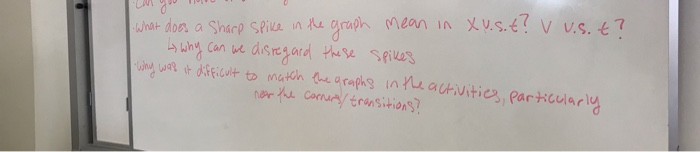 can you
· What does a sharp spike in the graph mean in x v.s. t? V v.s. t?
↳ why can we disregard these spikes
· why was it difficult to match the graphs in the activities, particularly
near the corners/transitions?